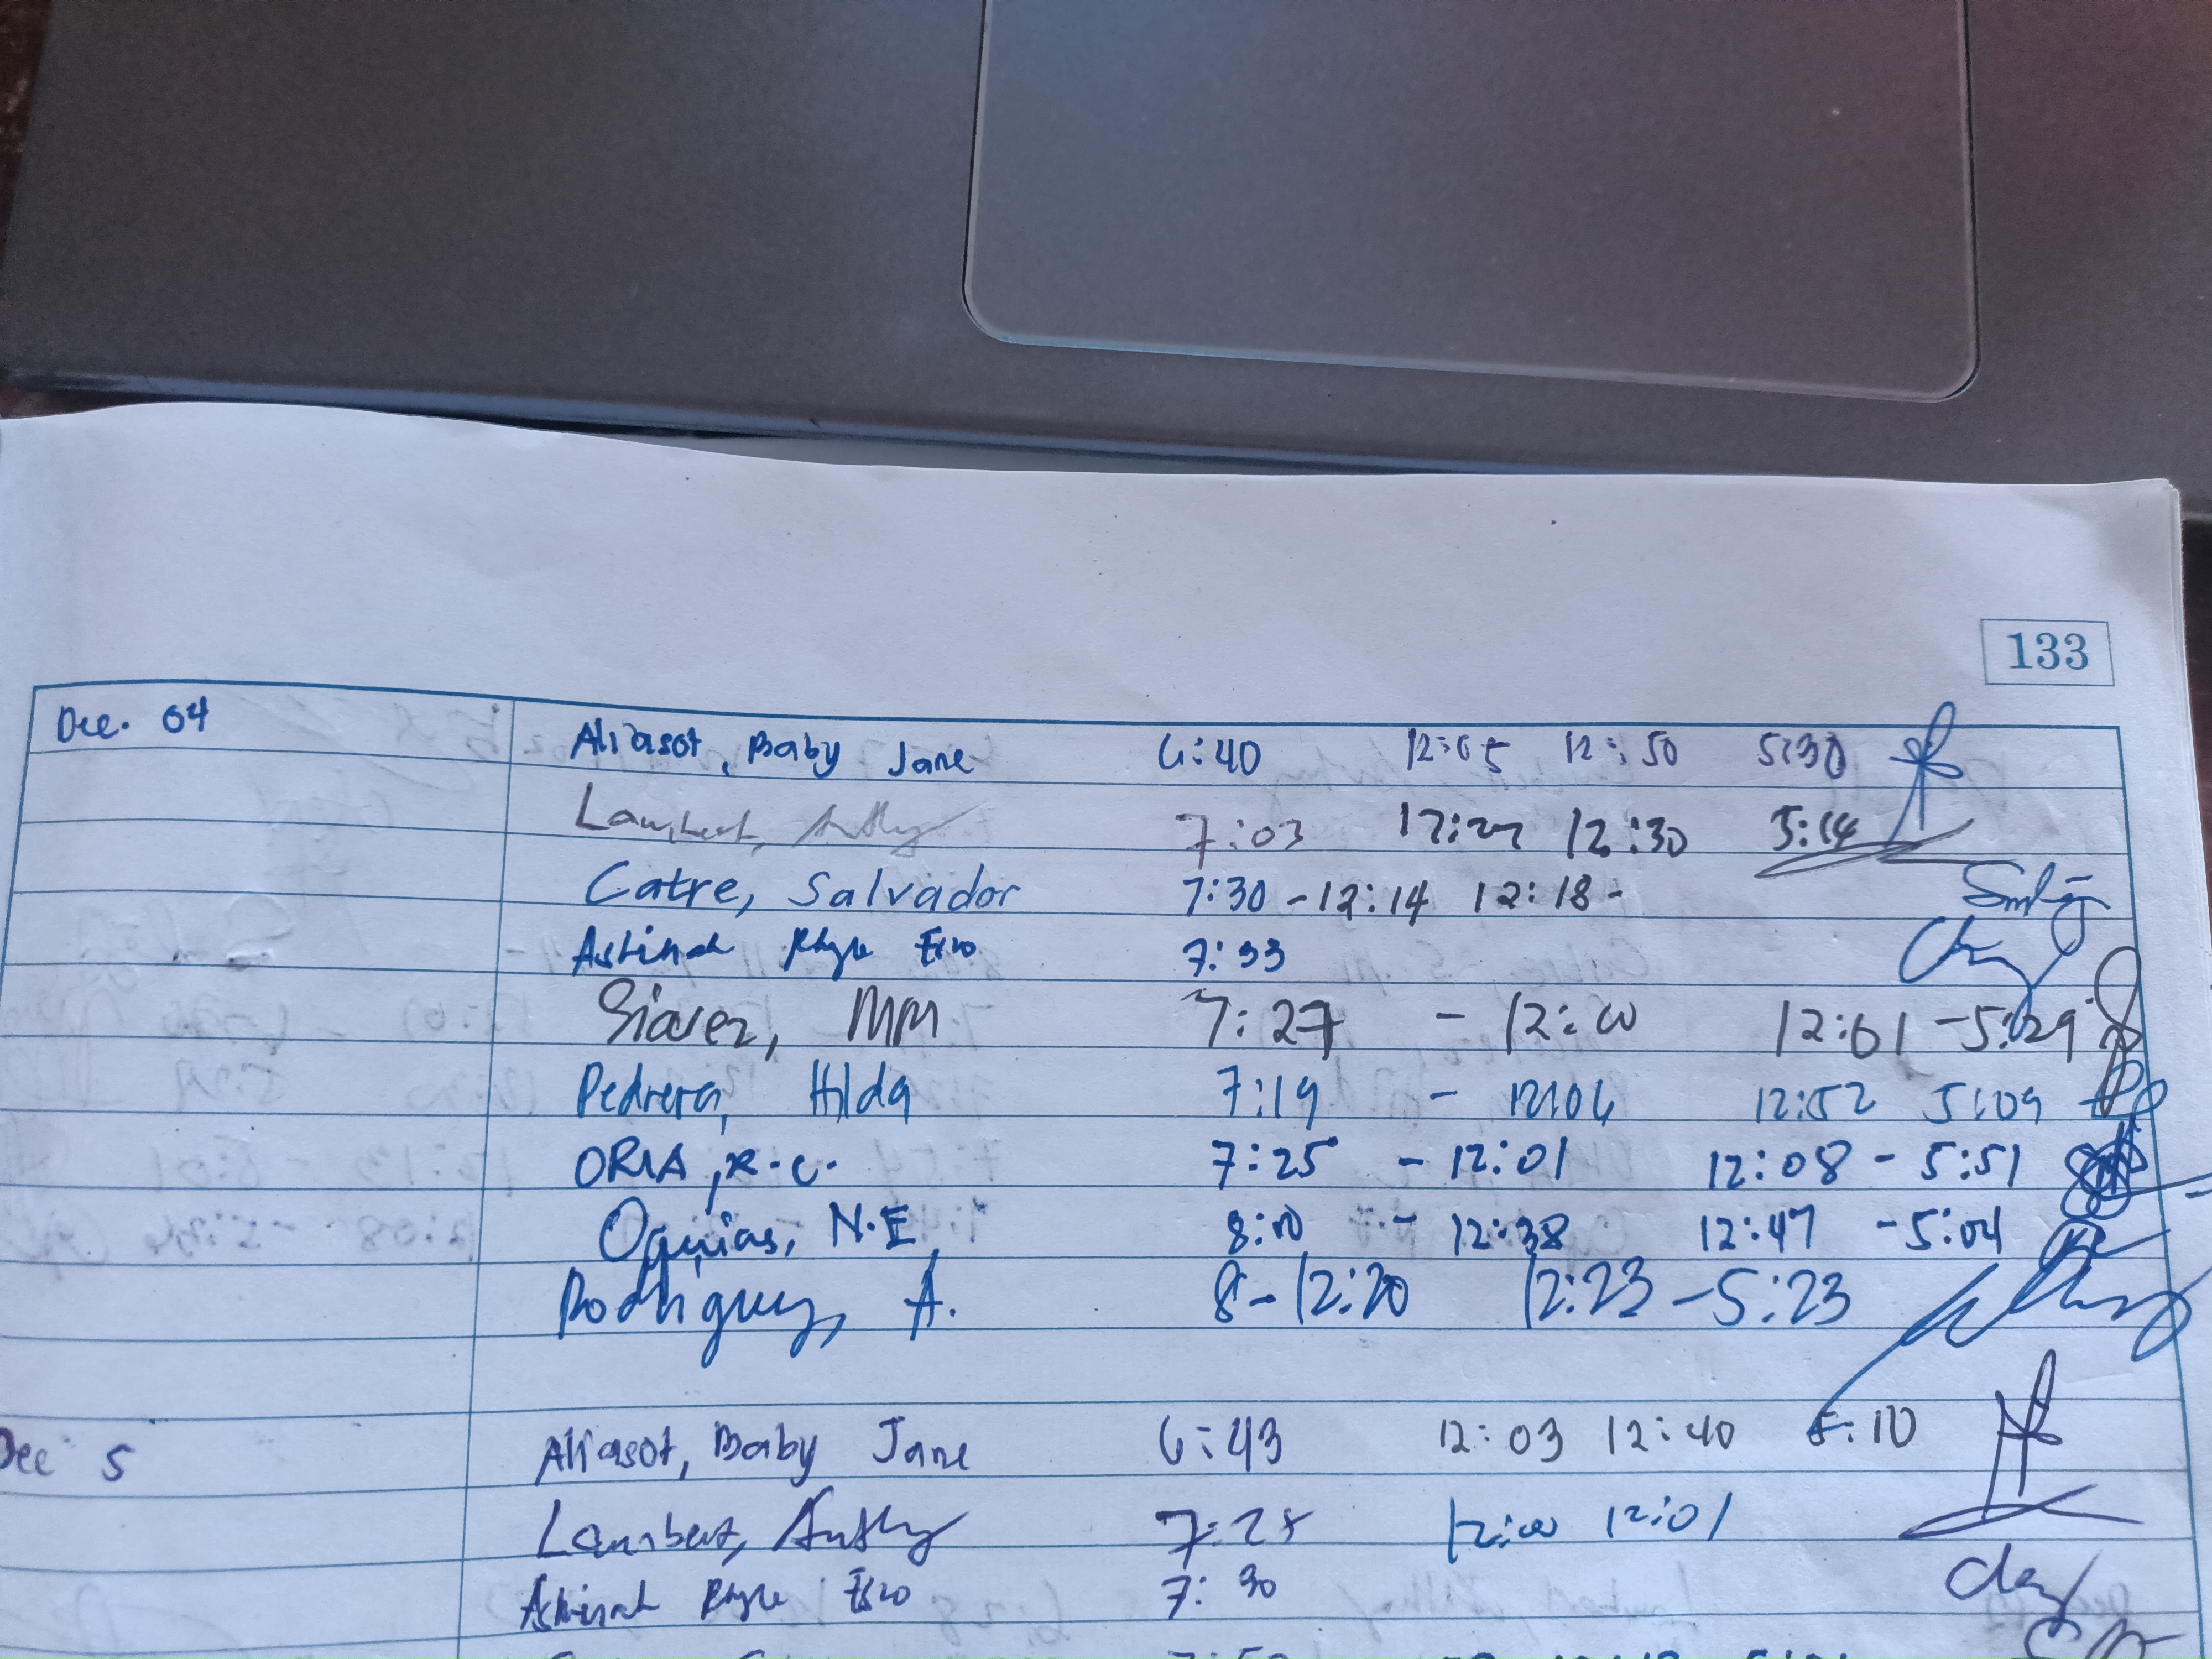 133
Dec. 04 Aliasot, Baby Jane 6:40 12:05 12:50 5:30
Lambert, 7:03 12:27 12:30 5:14
Catre, Salvador 7:30 - 12:14 12:18 -
7:33
Siarez, MM 7:27 - 12:00 12:01 - 5:29
Pedrera, Hilda 7:19 - 12:06 12:52 5:09
ORIA, R.C. 7:25 - 12:01 12:08 - 5:51
Oquias, N.E 8:10 - 12:38 12:47 - 5:04
Rodriguez, A. 8 - 12:20 12:23 - 5:23
Dec 5 Aliasot, Baby Jane 6:43 12:03 12:40 5:10
Lambert, 7:28 12:00 12:01
7:30